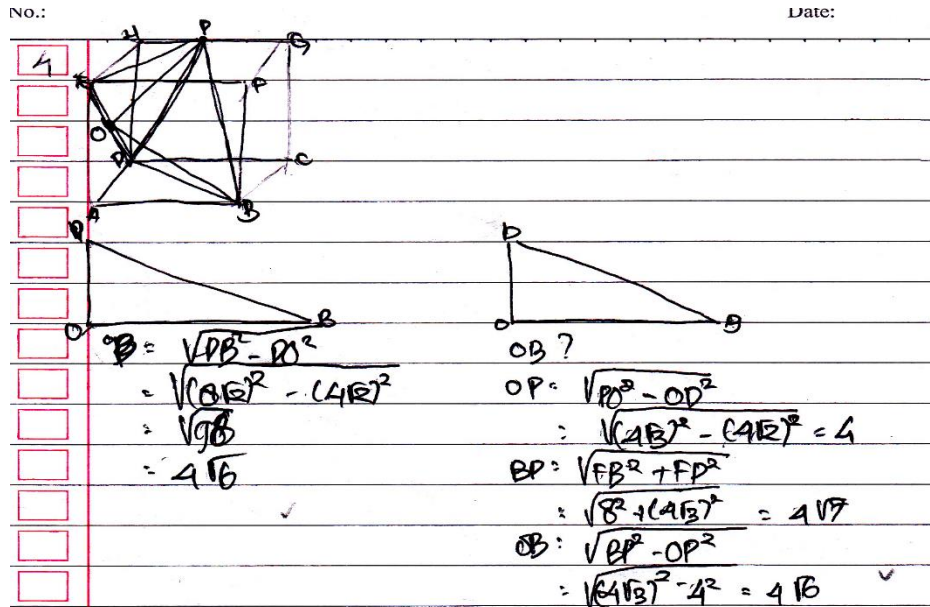 No.: Date:
4
H P G
E F
O
D C
A B
D
O B
D
O B
OB = √DB² - DO²
= √(8√2)² - (4√2)²
= √96
= 4√6
OB ?
OP = √PD² - OD²
= √(4√3)² - (4√2)² = 4
BP = √FB² + FP²
= √8² + (4√3)² = 4√7
OB = √BP² - OP²
= √(4√3)² - 4² = 4√6